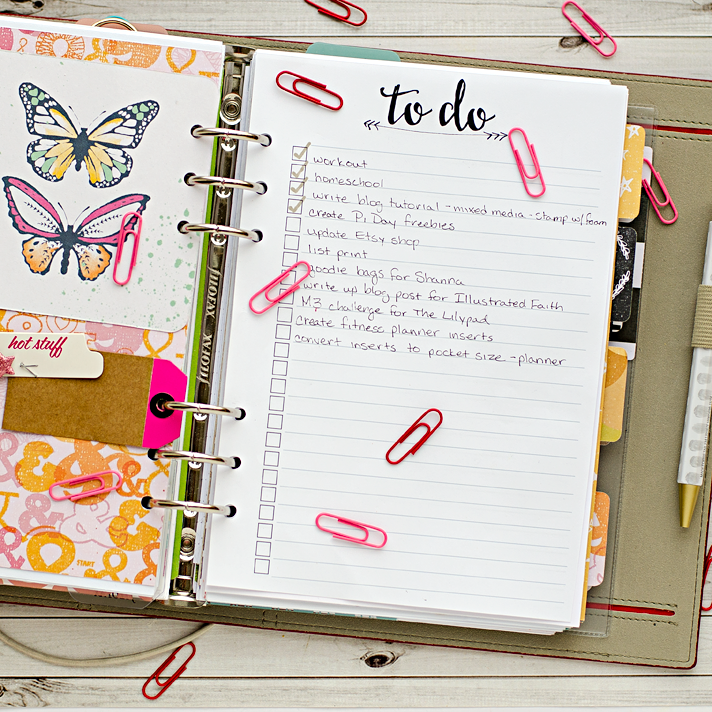 to do
workout
homeschool
write blog tutorial - mixed media - stamp w/foam
create Pi Day freebies
update Etsy shop
list print
goodie bags for Shanna
write up blog post for Illustrated Faith
M3 challenge for The Lilypad
create fitness planner inserts
convert inserts to pocket size - planner
hot stuff
FILOFAX
FILOFAX